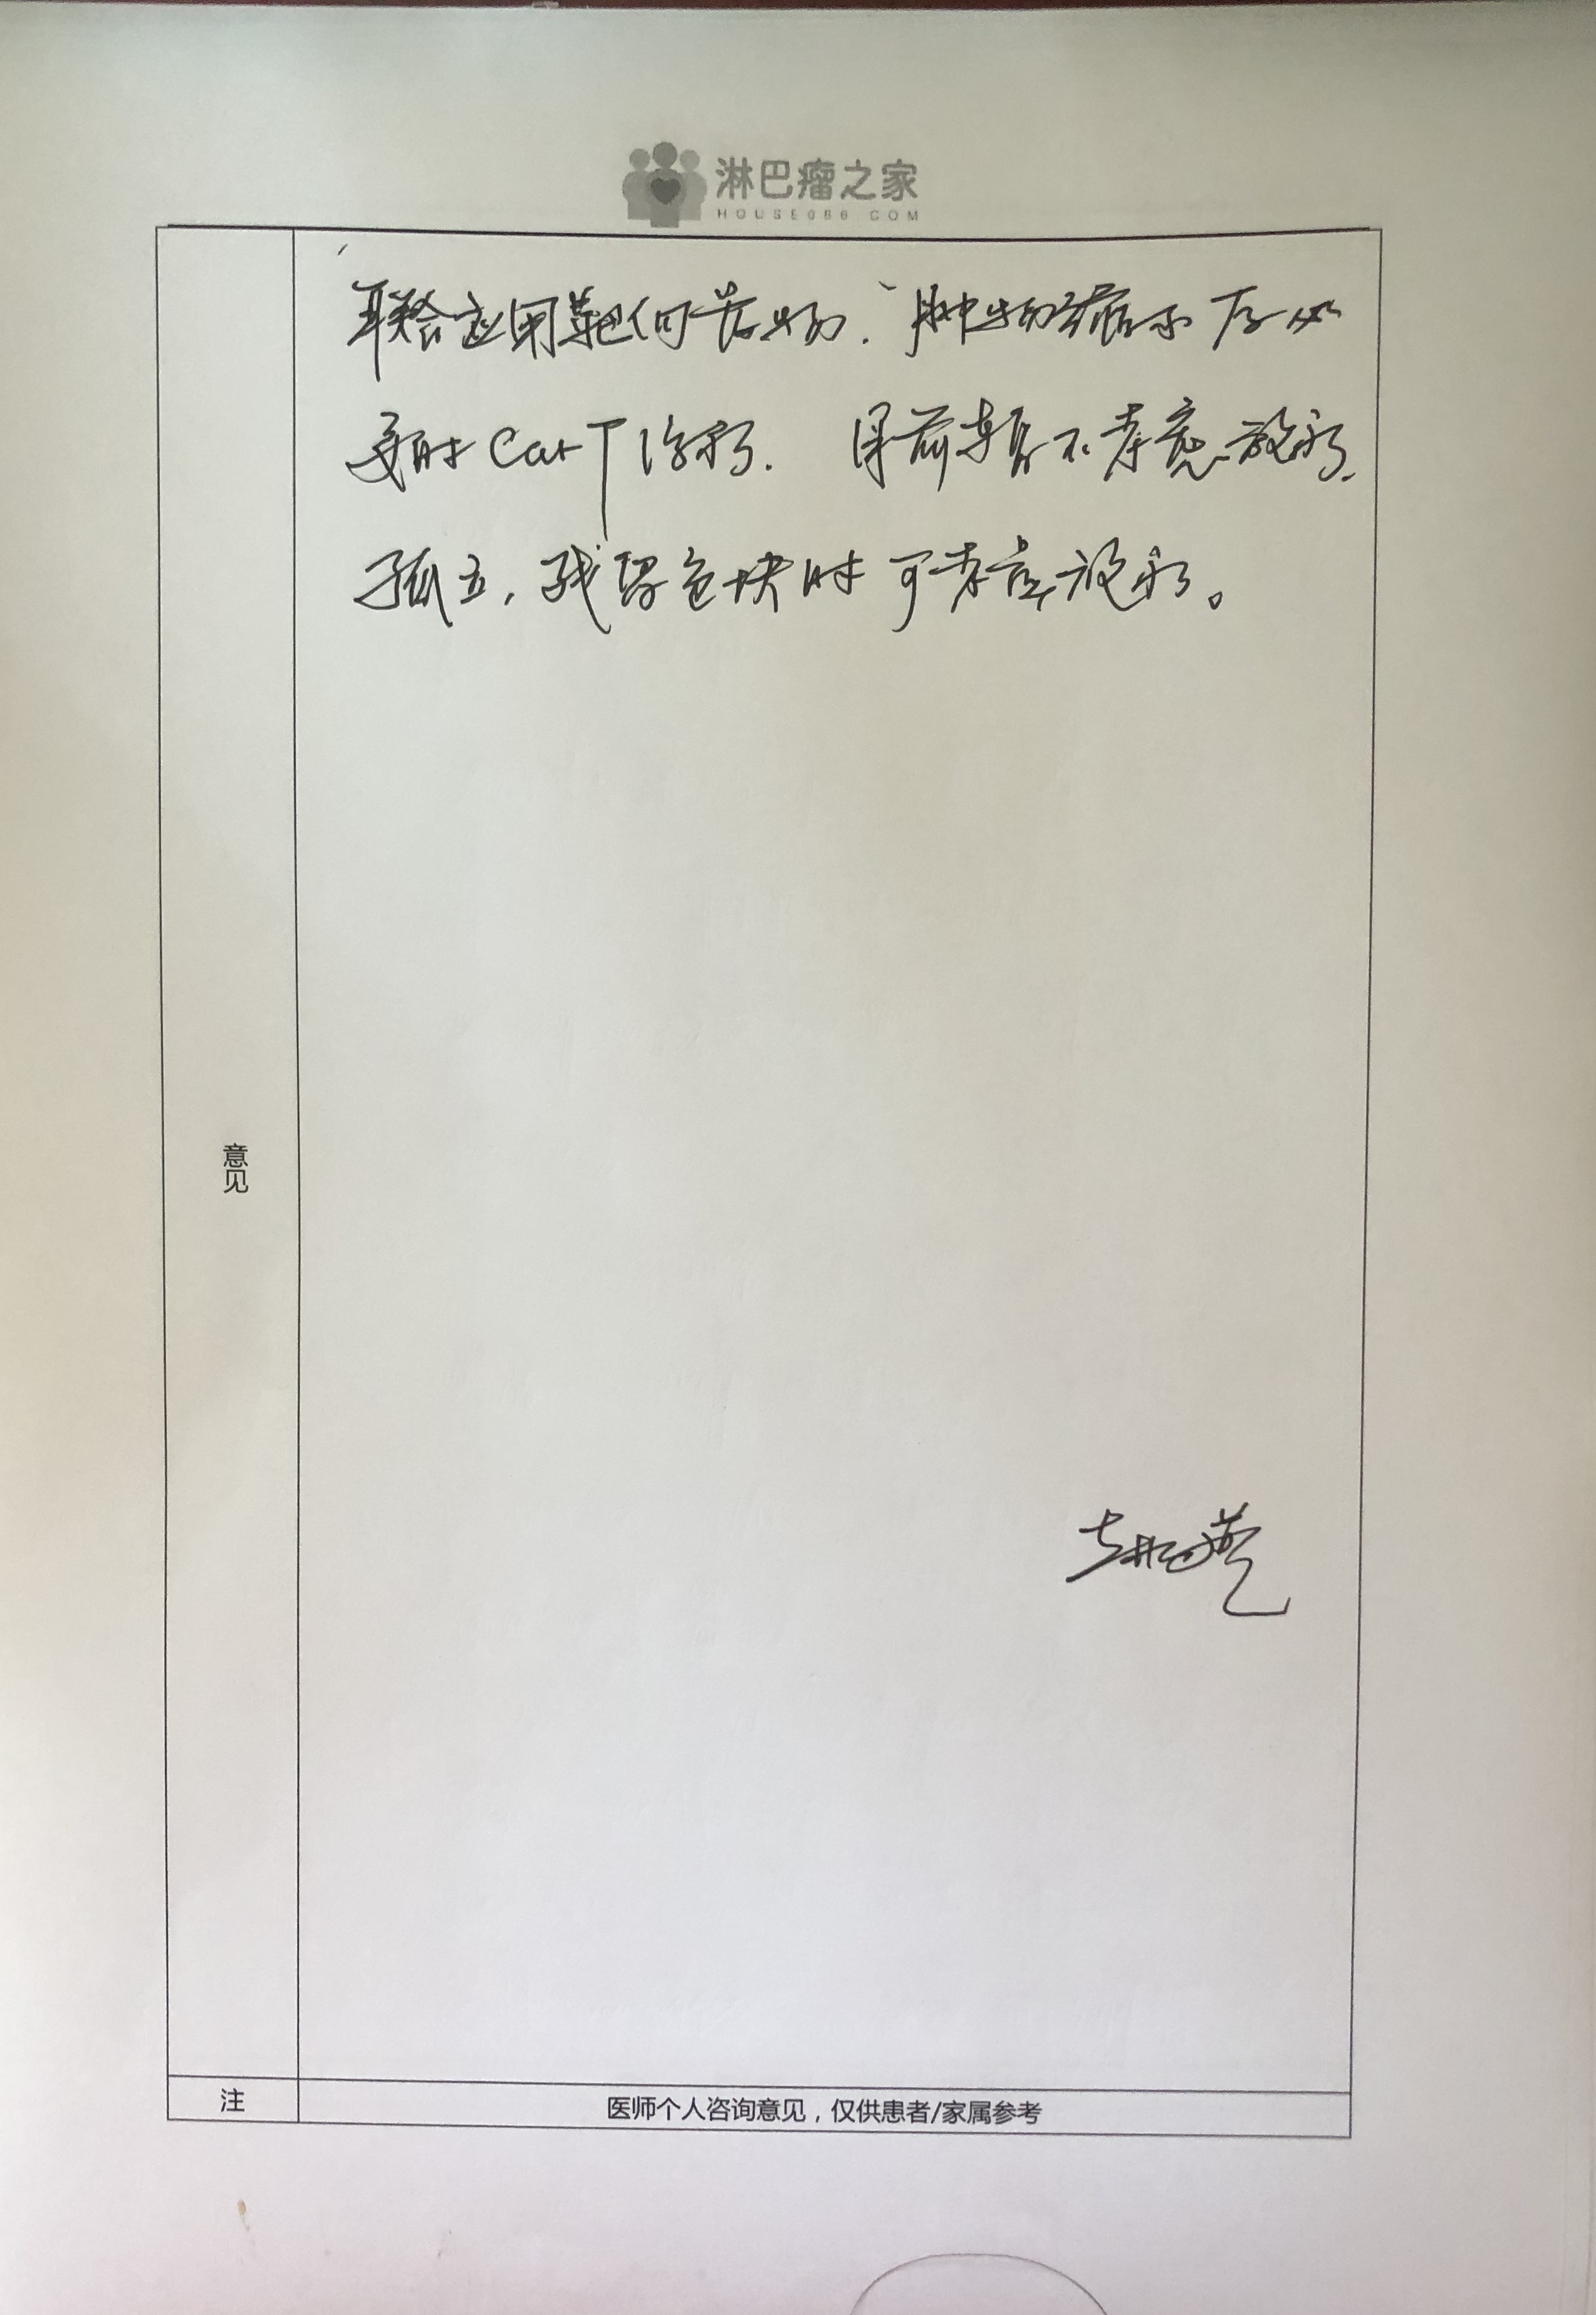 淋巴瘤之家
HOUSE086.COM
联合应用靶向药物、肿物缩小后必
要时CarT治疗. 目前暂不考虑放疗.
孤立,残留包块时可考虑放疗。
意见
注
医师个人咨询意见,仅供患者/家属参考